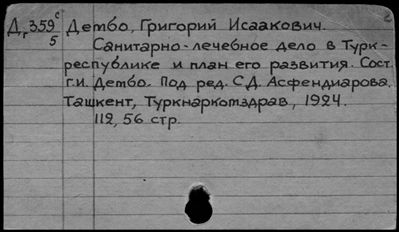 Д г 359 с/5 Дембо, Григорий Исаакович.
Санитарно-лечебное дело в Турк-
республике и план его развития. Сост.
Г.И. Дембо. Под ред. С.Д. Асфендиарова.
Ташкент, Туркнаркомздрав, 1924.
112, 56 стр.